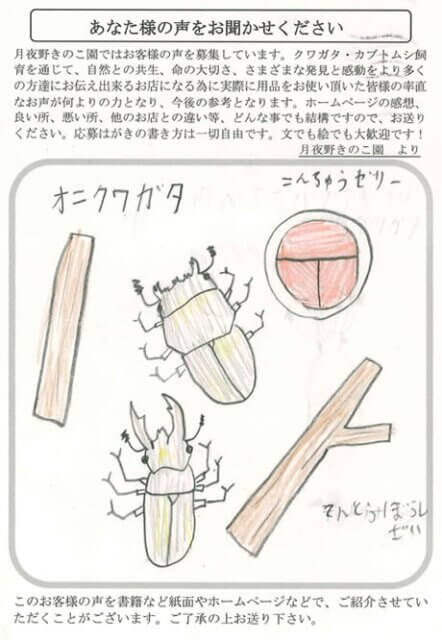 あなた様の声をお聞かせください
月夜野きのこ園ではお客様の声を募集しています。クワガタ・カブトムシ飼
育を通じて、自然との共生、命の大切さ、さまざまな発見と感動をより多く
の方達にお伝え出来るお店になる為に実際に用品をお使い頂いた皆様の率直
なお声が何よりの力となり、今後の参考となります。ホームページの感想、
良い所、悪い所、他のお店との違い等、どんな事でも結構ですので、お送り
ください。応募はがきの書き方は一切自由です。文でも絵でも大歓迎です！
月夜野きのこ園　より
こんちゅうゼリー
オニクワガタ
てんとうぼうし
ぜい
このお客様の声を書籍など紙面やホームページなどで、ご紹介させてい
ただくことがございます。ご了承の上お送り下さい。